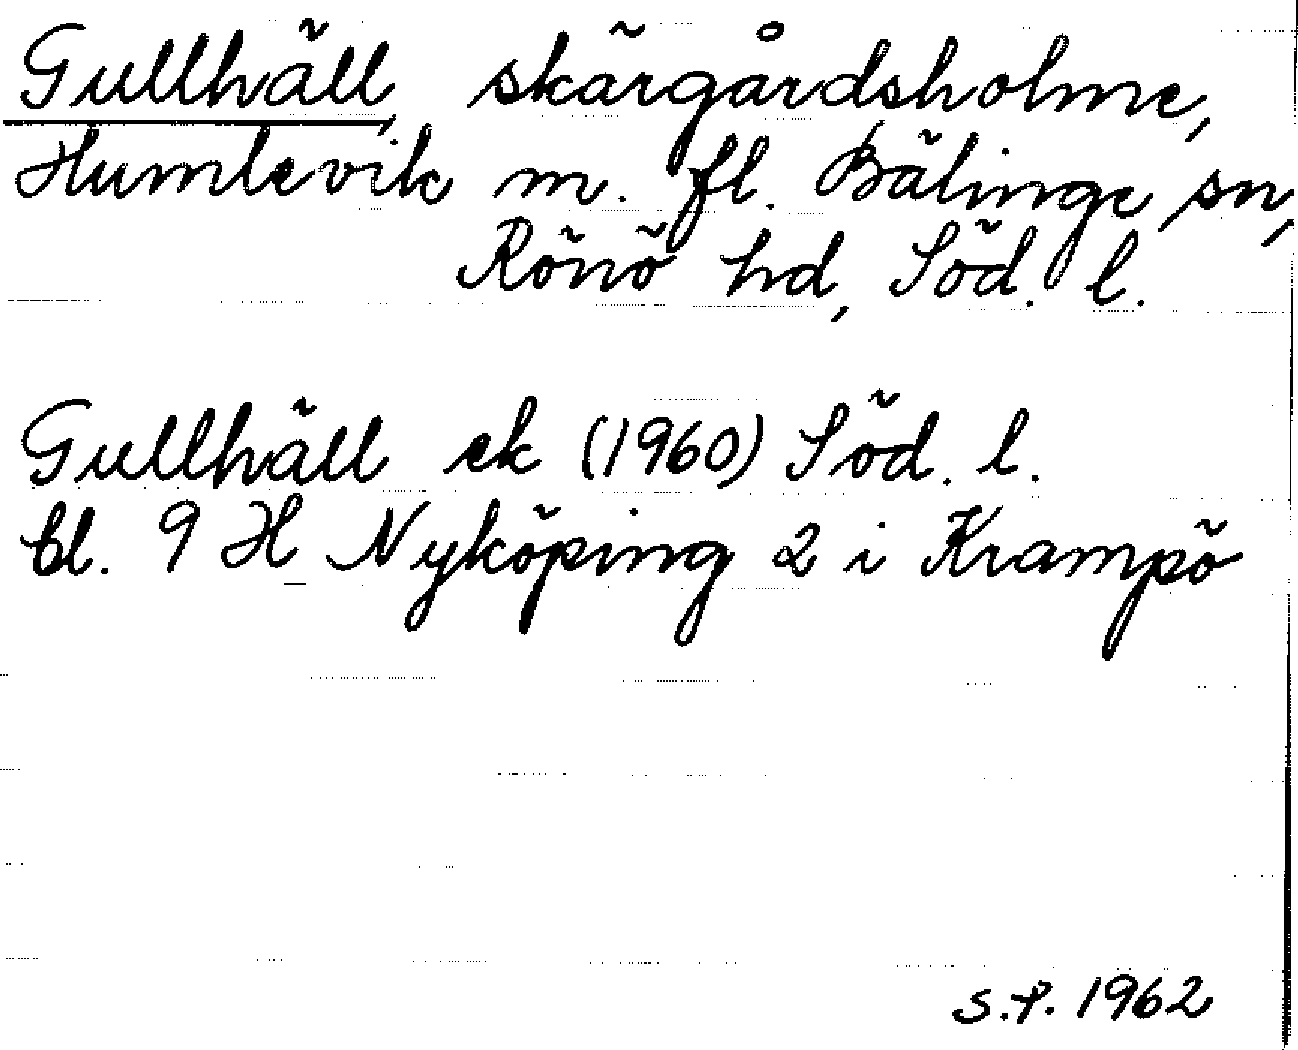 Gullhäll, skärgårdsholme,
Humlevik m. fl. Bälinge sn,
Rönö hd, Söd. l.
Gullhäll ek (1960) Söd. l.
bl. 9 H Nyköping 2 i Krampö
S.P. 1962